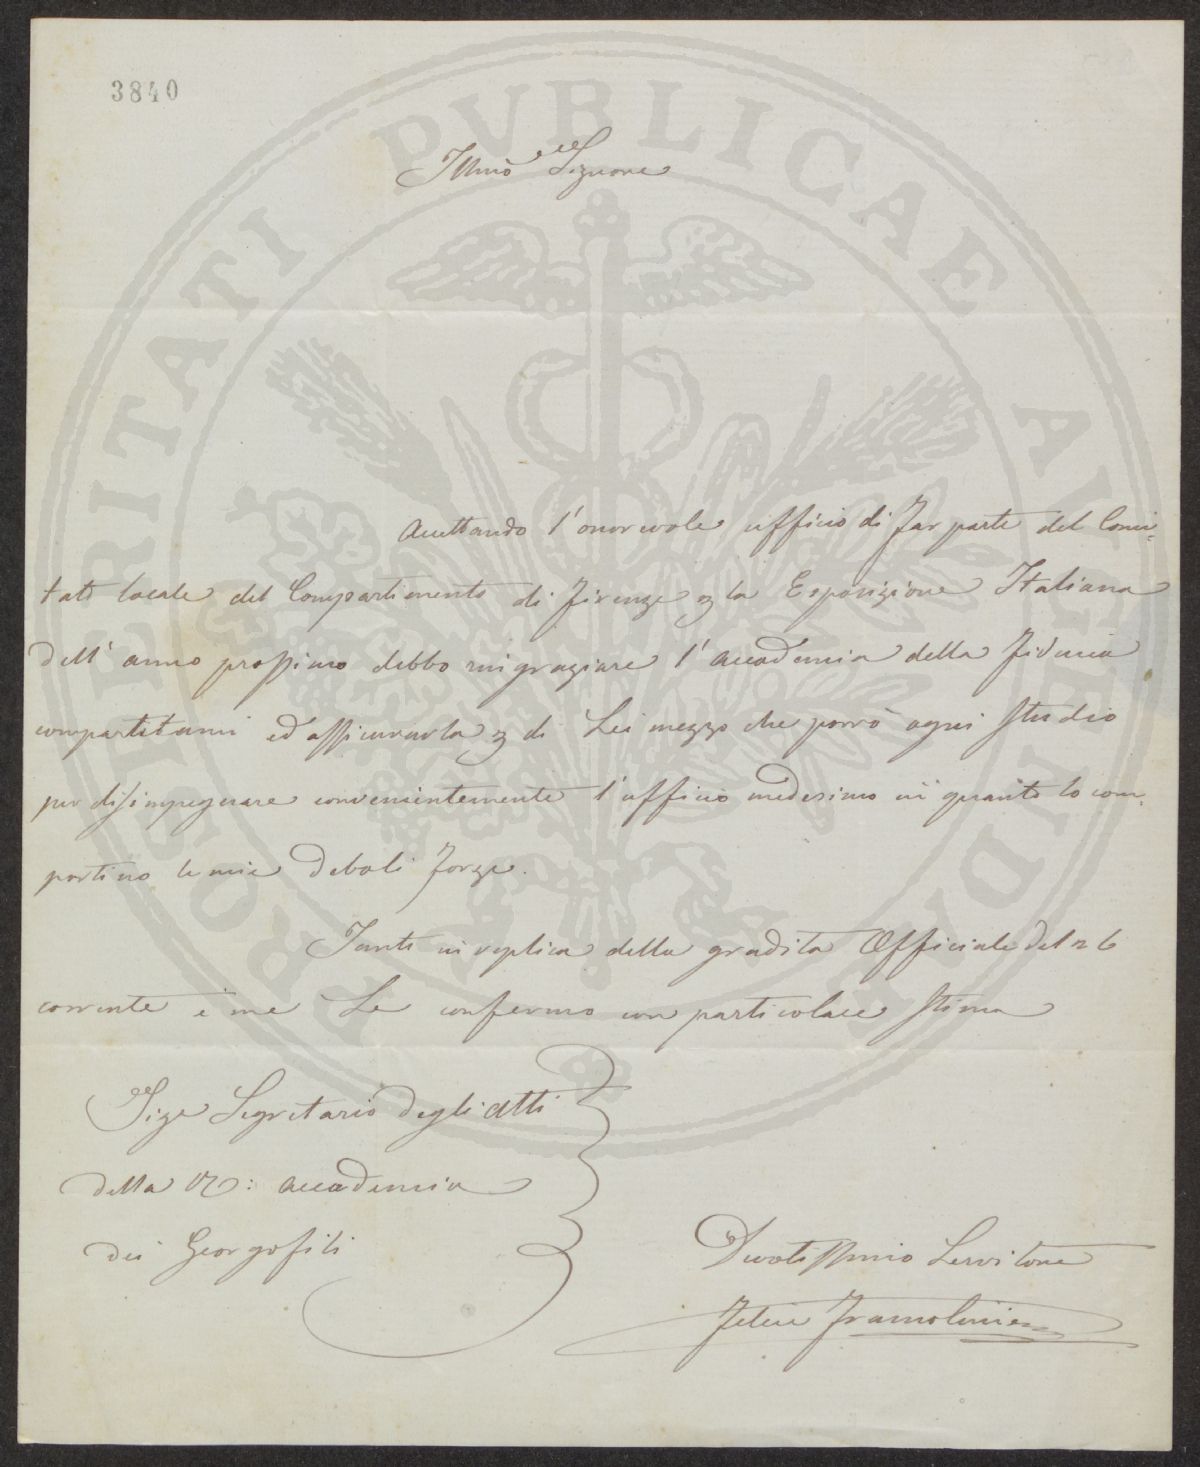 3840
PROSPERITATI PUBLICAE AUGENDAE
Illmo Signore
Accettando l'onorevole ufficio di far parte del Comi-
tato locale del Compartimento di Firenze p la Esposizione Italiana
dell'anno prossimo debbo ringraziare l'Accademia della fiducia
compartitami ed assicurarla p di Lei mezzo che porrò ogni studio
per disimpegnare convenientemente l'ufficio medesimo in quanto lo com-
portino le mie deboli forze.
Tanto in replica della gradita Officiale del 26
corrente e me Le confermo con particolare stima
Sigr Segretario degli Atti
della R: Accademia
dei Georgofili
Devotissimo Servitore
Felice